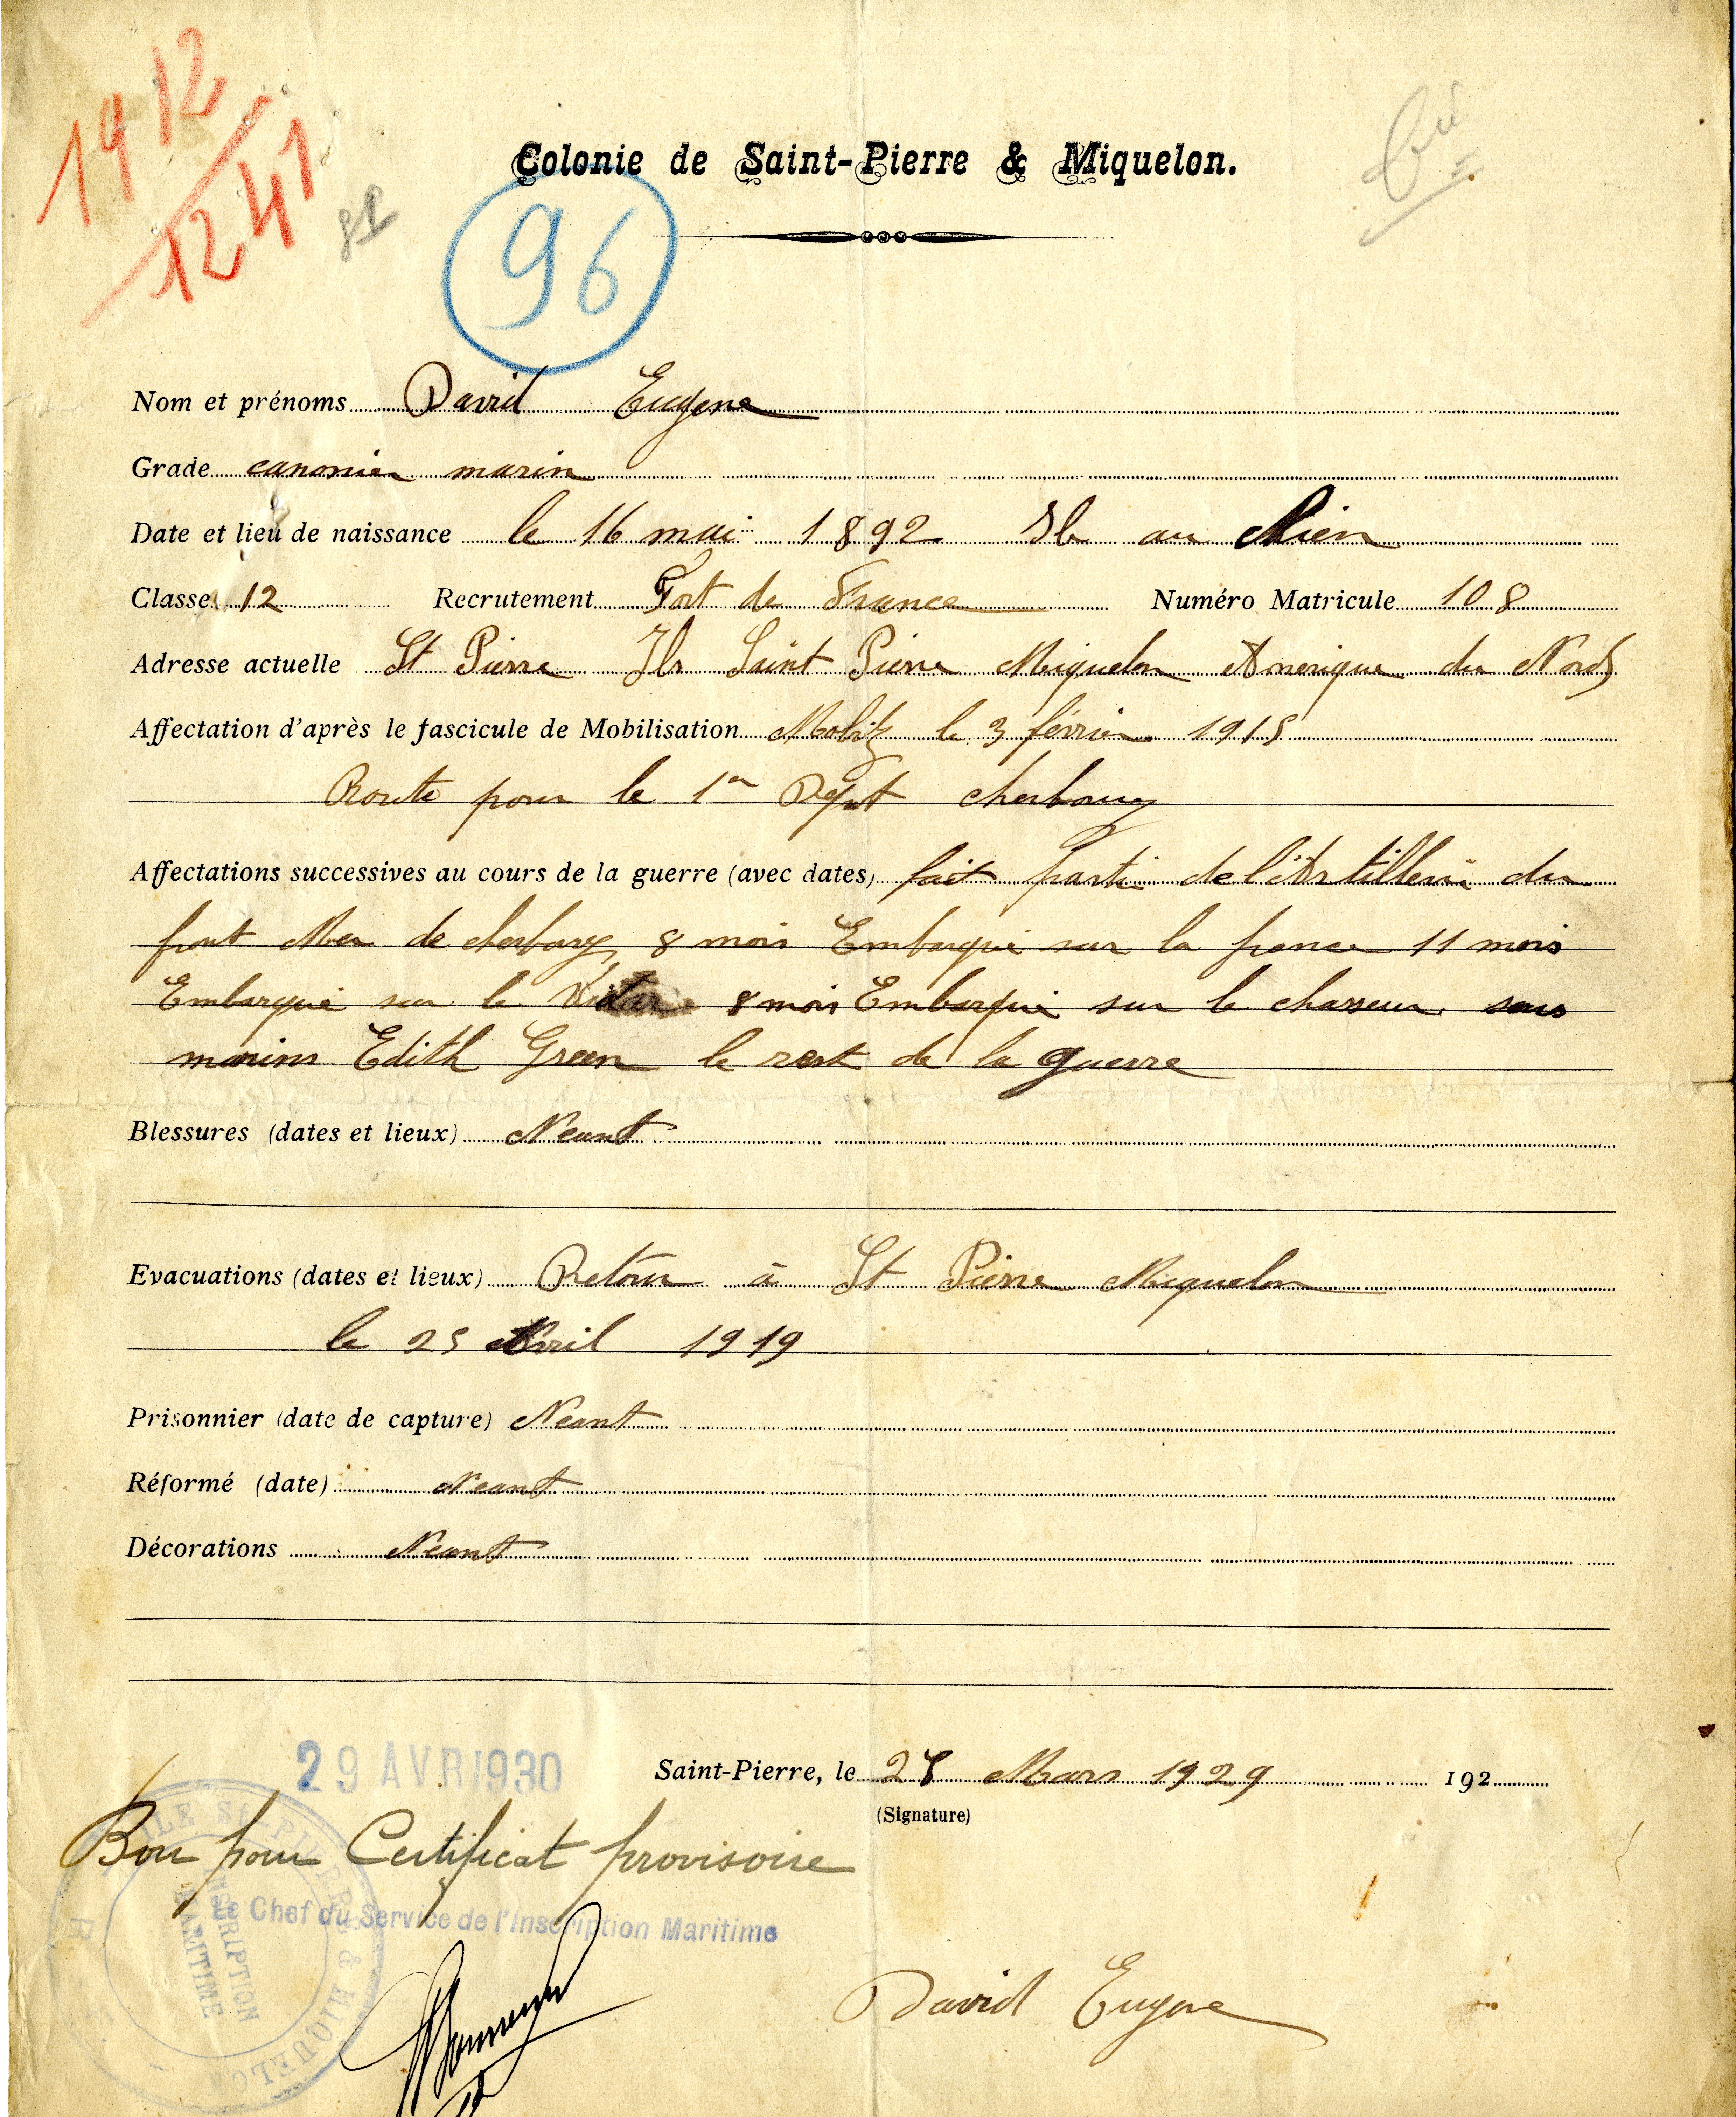 19 12
1241
Colonie de Saint-Pierre & Miquelon.
96
Nom et prénoms David Eugene
Grade canonier marin
Date et lieu de naissance le 16 mai 1892 Ile au
Classe 12 Recrutement Fort de France Numéro Matricule 108
Adresse actuelle St Pierre Ile Saint Pierre Miquelon Amerique du Nord
Affectation d'après le fascicule de Mobilisation le 3 février 1915
Route pour le 1er Depot cherbourg
Affectations successives au cours de la guerre (avec dates) fait parti de l'Artillerie du
front Mer de cherbourg 8 mois Embarqué sur la france 11 mois
Embarqué sur le 8 mois Embarqué sur le chasseur sous
marins Edith Green le rest de la guerre
Blessures (dates et lieux) Neant
Evacuations (dates et lieux) Retour à St Pierre Miquelon
le 25 Avril 1919
Prisonnier (date de capture) Neant
Réformé (date) Neant
Décorations Neant
29 AVR 1930
Saint-Pierre, le Mars 1929 192
(Signature)
Bon pour Certificat provisoire
Le Chef du Service de l'Inscription Maritime
ILE ST PIERRE & MIQUELON
INSCRIPTION
MARITIME
David Eugene